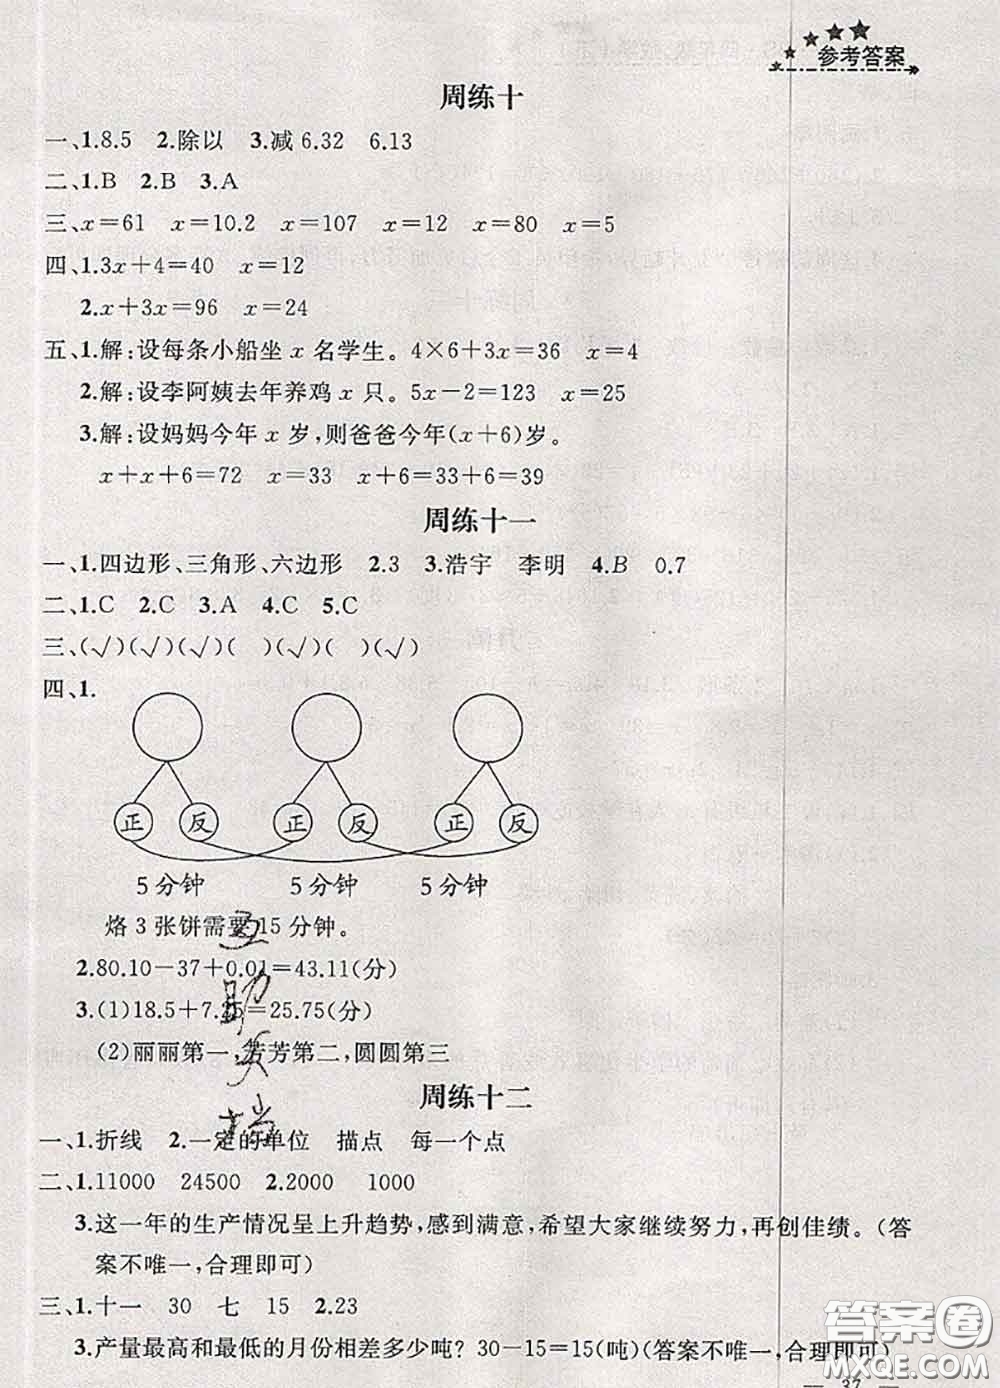 参考答案
周练十
一、1.8.5 2.除以 3.减 6.32 6.13
二、1.B 2.B 3.A
三、x=61 x=10.2 x=107 x=12 x=80 x=5
四、1.3x+4=40 x=12
2.x+3x=96 x=24
五、1.解:设每条小船坐 x 名学生。4×6+3x=36 x=4
2.解:设李阿姨去年养鸡 x 只。5x-2=123 x=25
3.解:设妈妈今年 x 岁,则爸爸今年(x+6)岁。
x+x+6=72 x=33 x+6=33+6=39
周练十一
一、1.四边形、三角形、六边形 2.3 3.浩宇 李明 4.B 0.7
二、1.C 2.C 3.A 4.C 5.C
三、(√)(√)(√)(√)( )(√)( )(√)
四、1.
正 反 正 反 正 反
5分钟 5分钟 5分钟
烙3张饼需要15分钟。
2.80.10-37+0.01=43.11(分)
3.(1)18.5+7.25=25.75(分)
(2)丽丽第一,芳芳第二,圆圆第三
周练十二
一、1.折线 2.一定的单位 描点 每一个点
二、1.11000 24500 2.2000 1000
3.这一年的生产情况呈上升趋势,感到满意,希望大家继续努力,再创佳绩。(答
案不唯一,合理即可)
三、1.十一 30 七 15 2.23
3.产量最高和最低的月份相差多少吨? 30-15=15(吨)(答案不唯一,合理即可)
答案圈
MXQE.COM
37